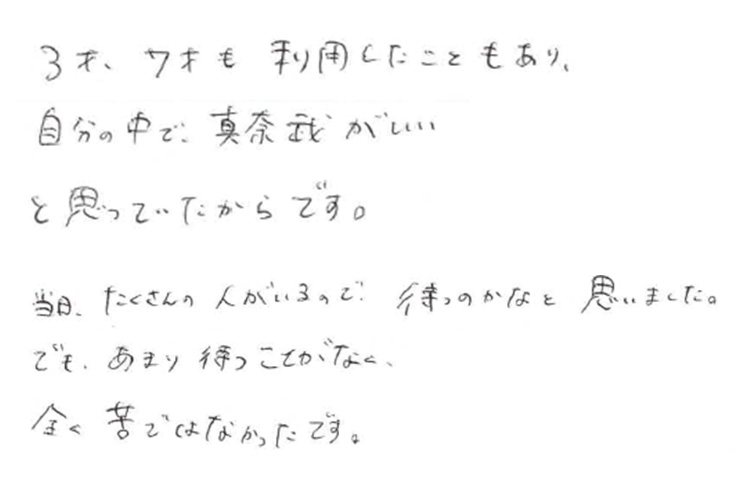 3才、7才も利用したこともあり、
自分の中で、真奈武がいい
と思っていたからです。
当日、たくさんの人がいるので、待つのかなと思いました。
でも、あまり待つことがなく、
全く苦ではなかったです。